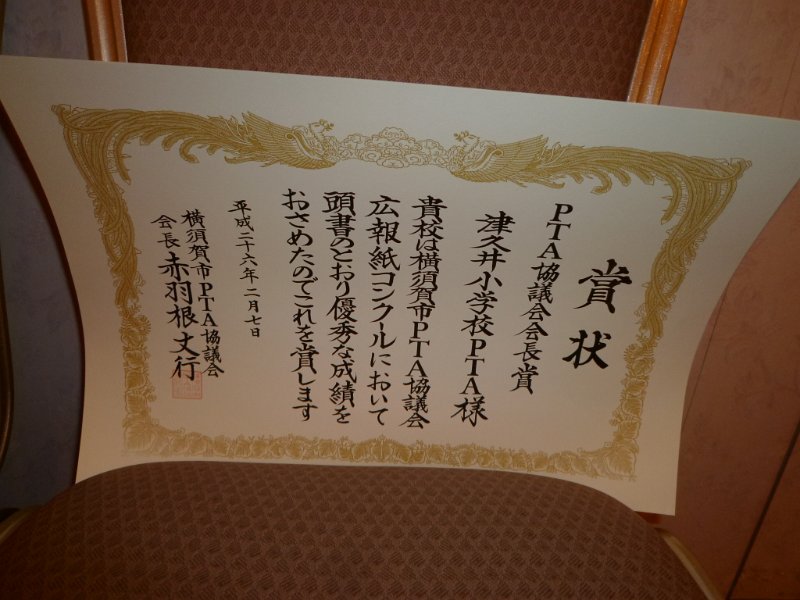 賞状
PTA協議会会長賞
津久井小学校PTA様
貴校は横須賀市PTA協議会
広報紙コンクールにおいて
頭書のとおり優秀な成績を
おさめたのでこれを賞します
平成二十六年二月七日
横須賀市PTA協議会
会長 赤羽根丈行